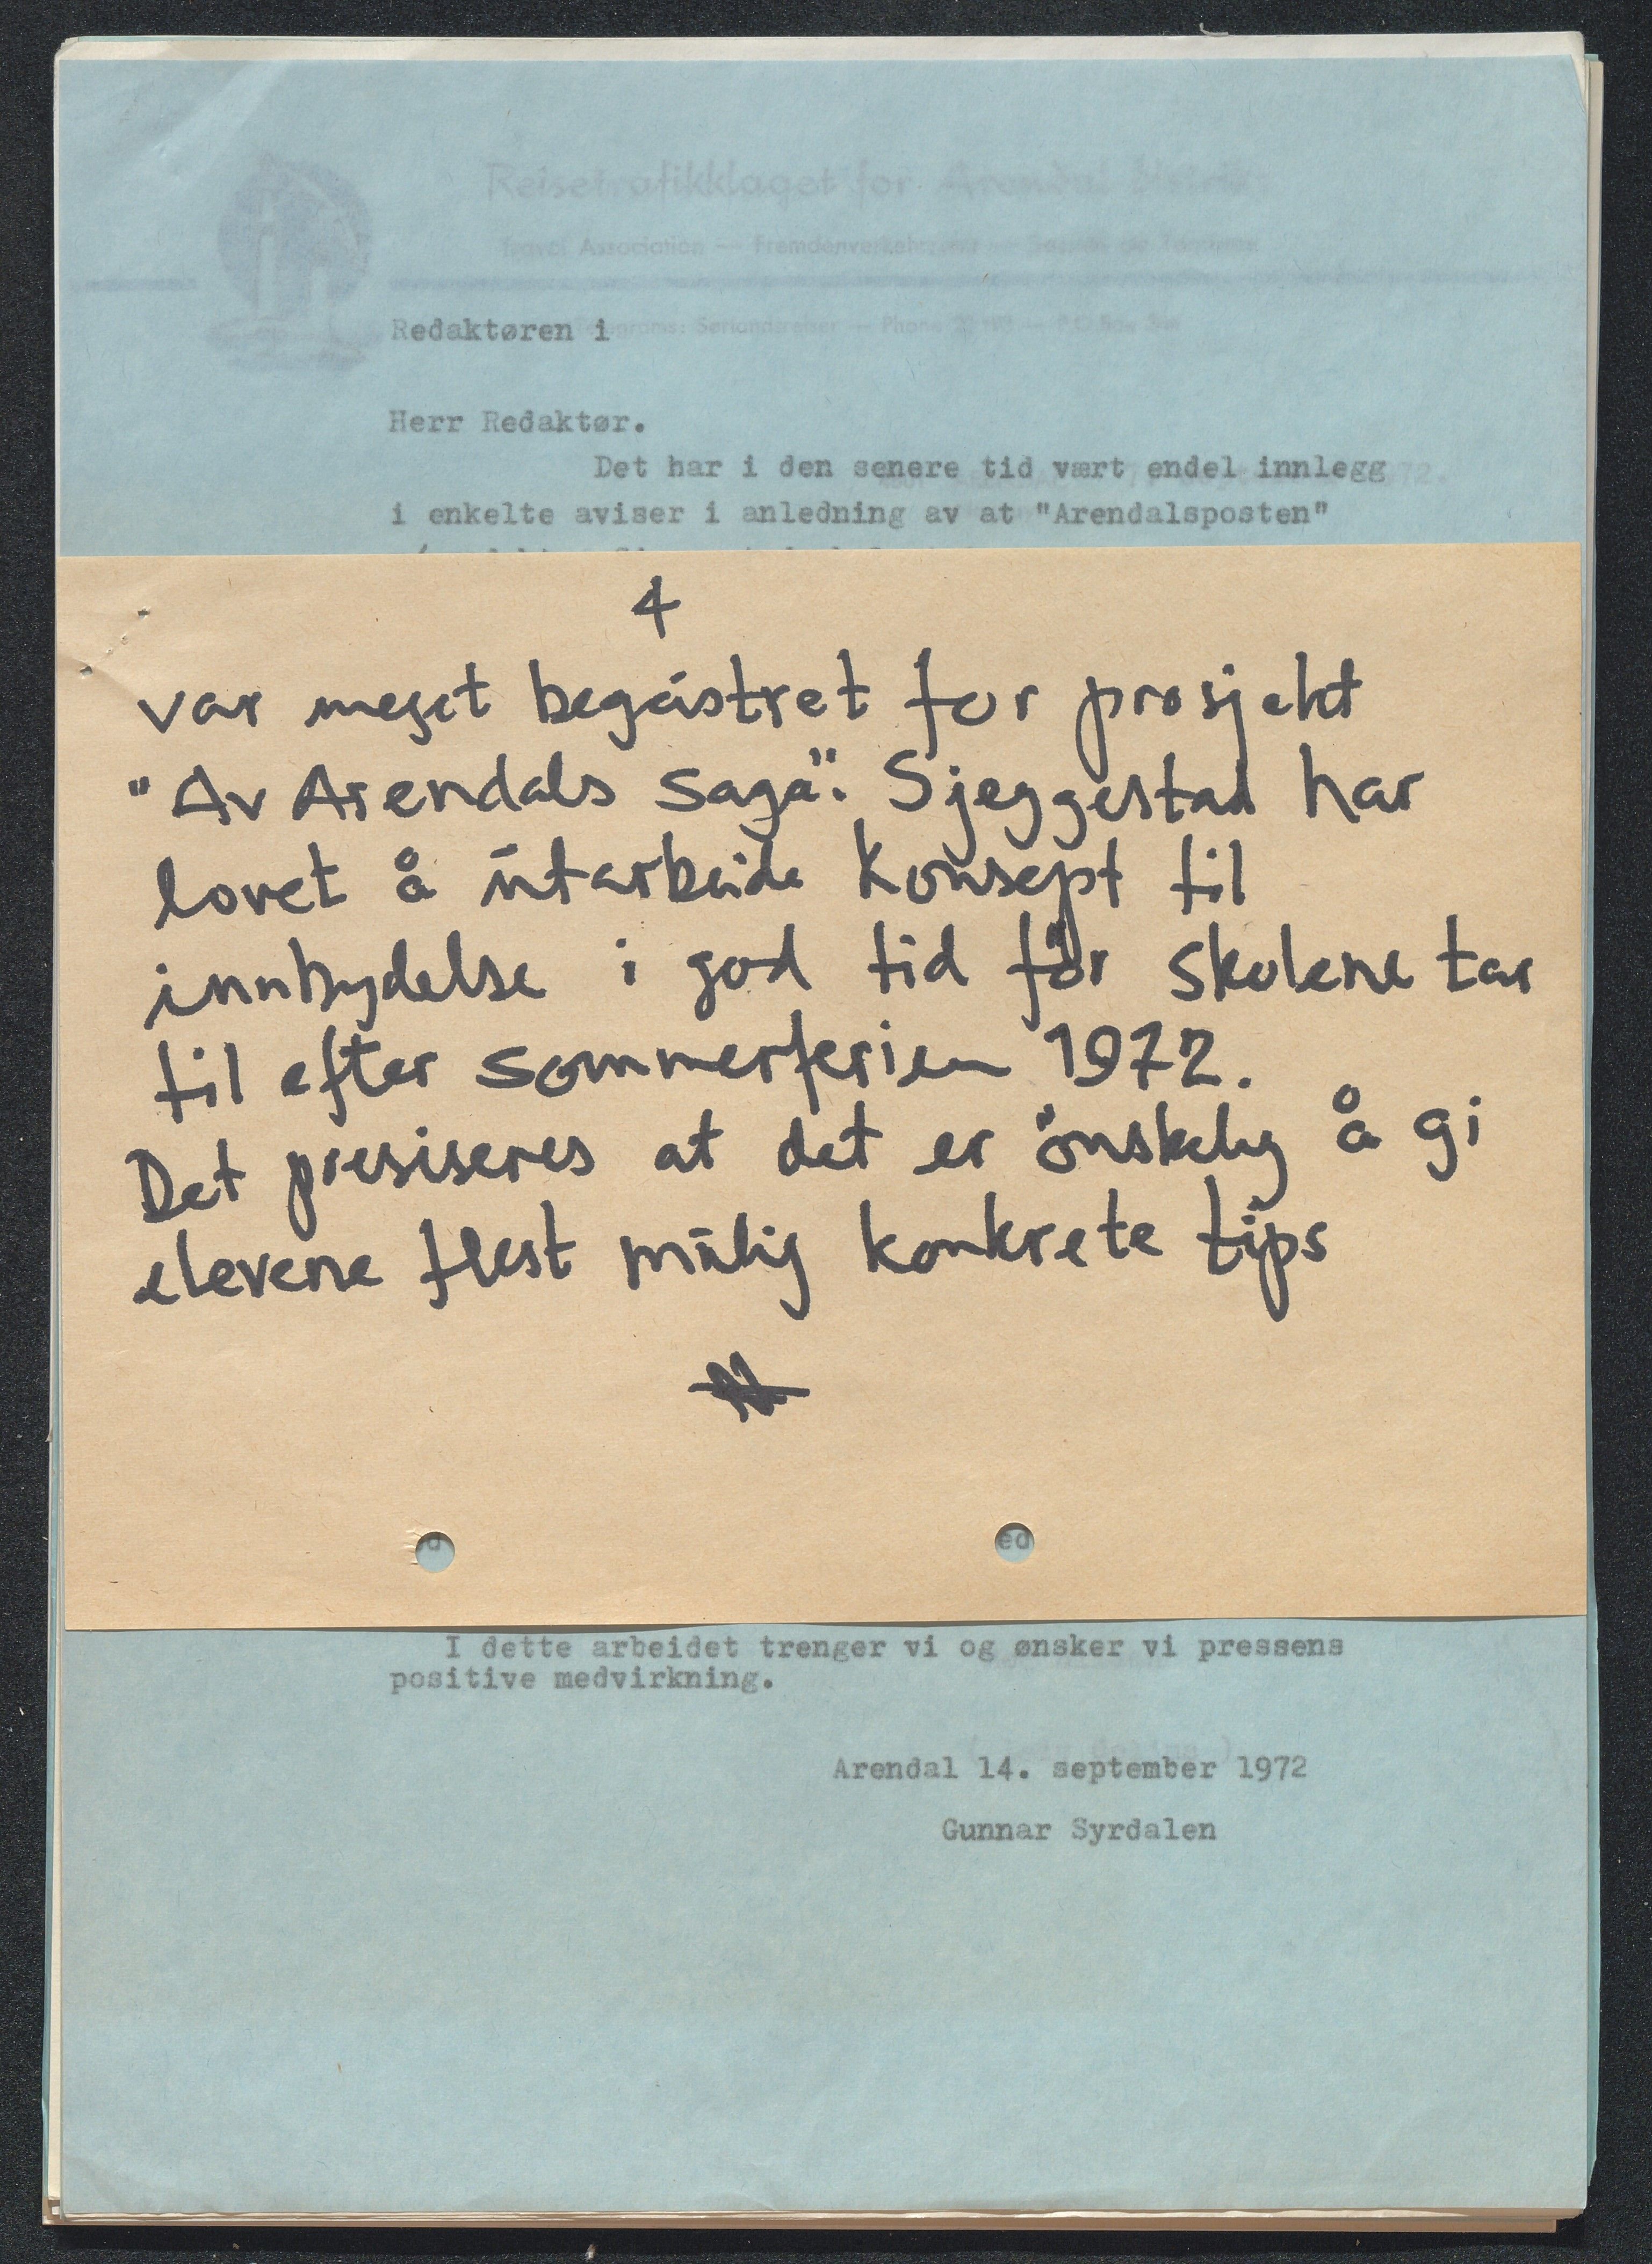 Reisetrafikklaget for Arendal
Travel Association — Fremdenverkehrs
Redaktøren i
Herr Redaktør.
Det har i den senere tid vært endel innlegg
i enkelte aviser i anledning av at "Arendalsposten"
4
var meget begeistret for prosjekt
"Av Arendals saga". Sjeggestad har
lovet å utarbeide konsept til
innbydelse i god tid før skolene tar
til efter sommerferien 1972.
Det presiseres at det er önskelig å gi
elevene flest mulig konkrete tips
ed
I dette arbeidet trenger vi og ønsker vi pressens
positive medvirkning.
Arendal 14. september 1972
Gunnar Syrdalen